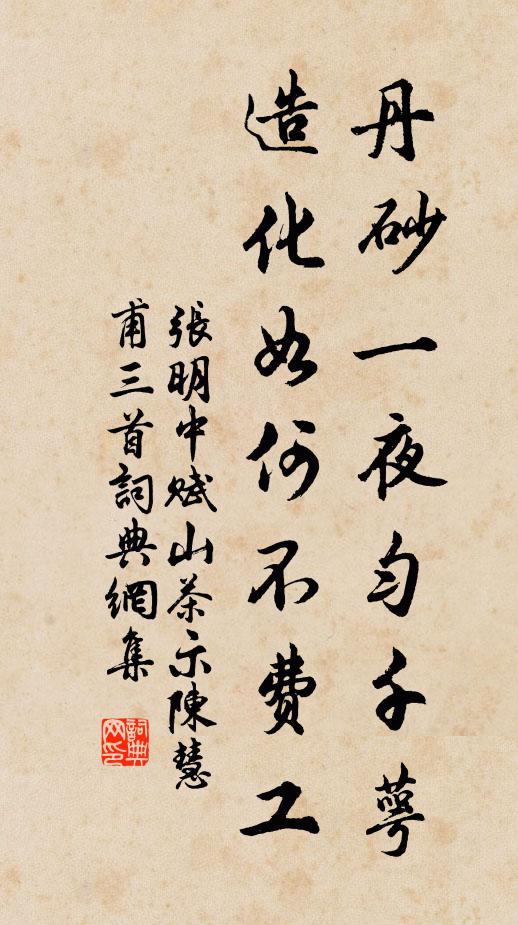 丹砂一夜匀千萼
造化如何不费工
張明中赋山茶示陳慧
甫三首詞典網集
詞典
网印